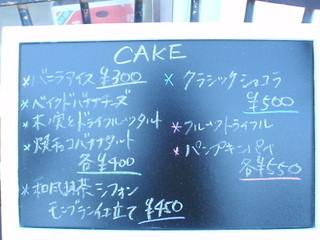 CAKE
*バニラアイス ¥300
*ベイクドバナナチーズ
*木ノ実とドライフルーツタルト
*焼チョコバナナタルト
各¥400
*和風抹茶シフォン
モンブラン仕立て ¥450
*クラシックショコラ
¥500
*フルーツトライフル
*パンプキンパイ
各¥550